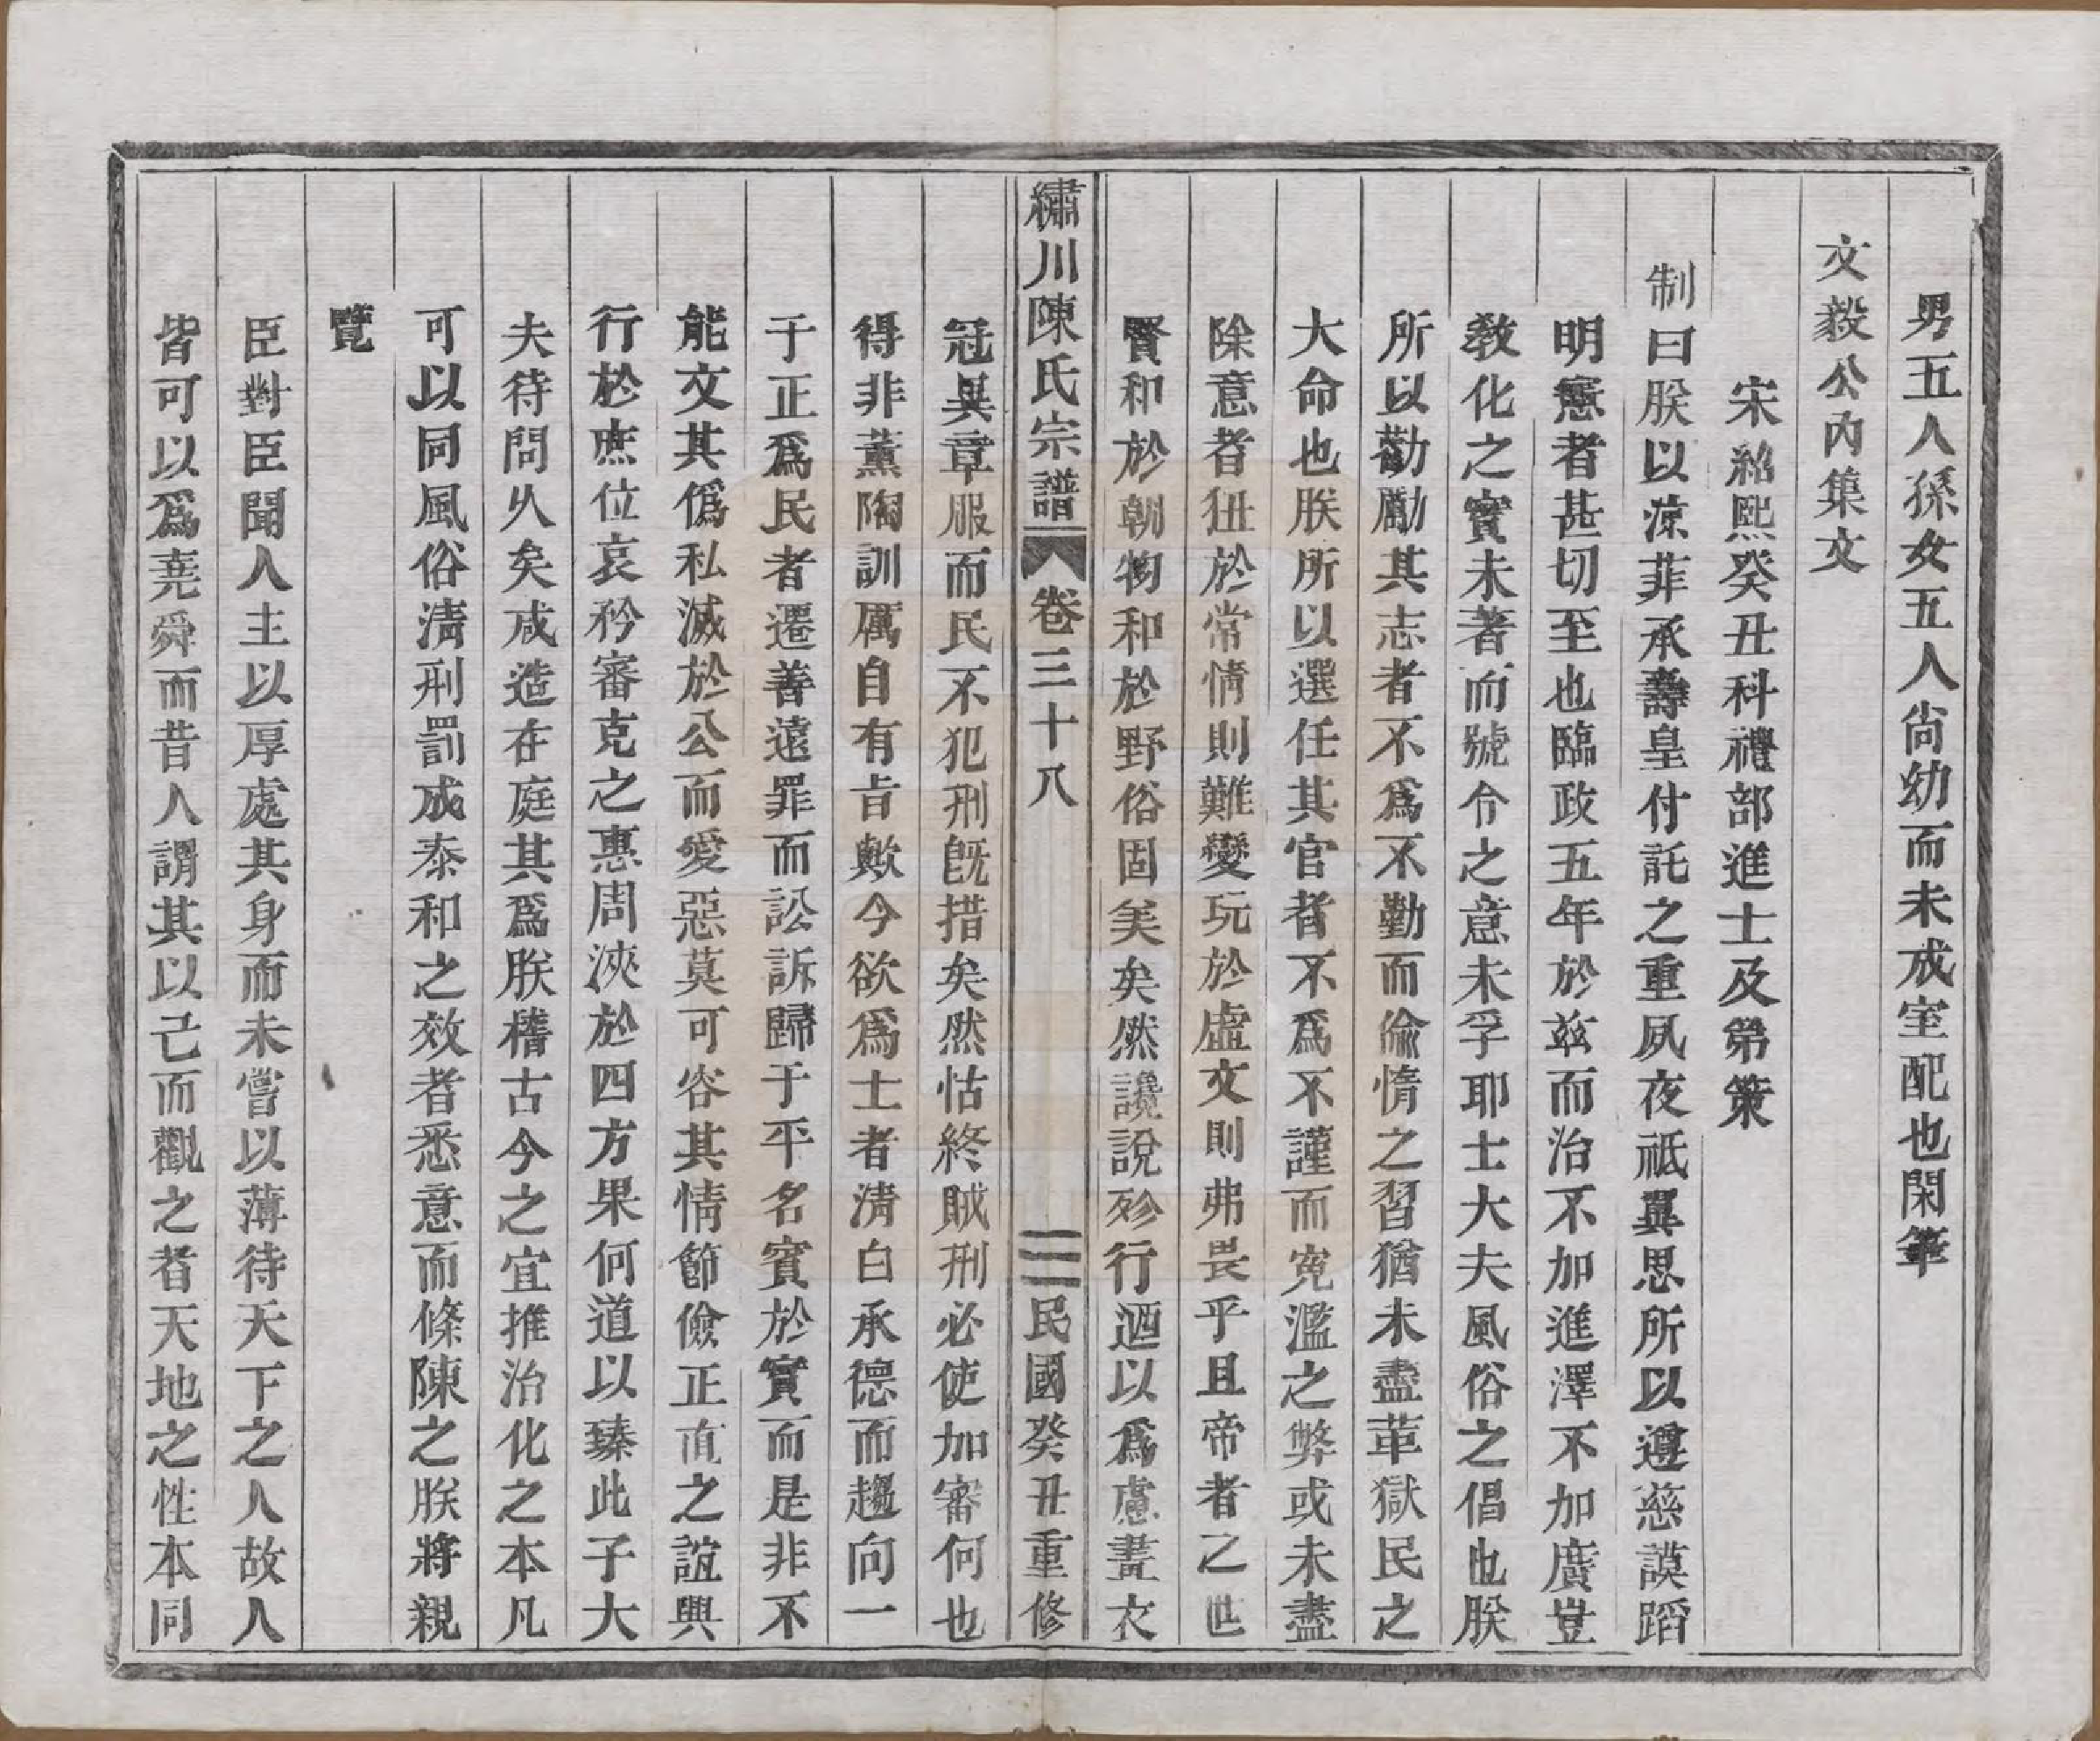 男五人孫女五人尙幼而未成室配也閑筆
文毅公內集文
宋紹熙癸丑科禮部進士及第策
制曰朕以涼菲承壽皇付託之重夙夜祗翼思所以遵慈謨蹈
明憲者甚切至也臨政五年於兹而治不加進澤不加廣豈
敎化之實未著而號令之意未孚耶士大夫風俗之倡也朕
所以勸勵其志者不爲不勤而偷惰之習猶未盡革獄民之
大命也朕所以選任其官者不爲不謹而寃濫之弊或未盡
除意者狃於常情則難變玩於虛文則弗畏乎且帝者之世
賢和於朝物和於野俗固美矣然讒說殄行廼以爲慮畫衣
繡川陳氏宗譜 卷三十八 三 民國癸丑重修
冠異章服而民不犯刑旣措矣然怙終賊刑必使加審何也
得非薰陶訓厲自有旨歟今欲爲士者淸白承德而趨向一
于正爲民者遷善遠罪而訟訴歸于平名賓於實而是非不
能文其僞私滅於公而愛惡莫可容其情節儉正直之誼興
行於庶位哀矜審克之惠周浹於四方果何道以臻此子大
夫待問久矣咸造在庭其爲朕稽古今之宜推治化之本凡
可以同風俗淸刑罰成泰和之效者悉意而條陳之朕將親
覽
臣對臣聞人主以厚處其身而未嘗以薄待天下之人故人
皆可以爲堯舜而昔人謂其以己而觀之者天地之性本同